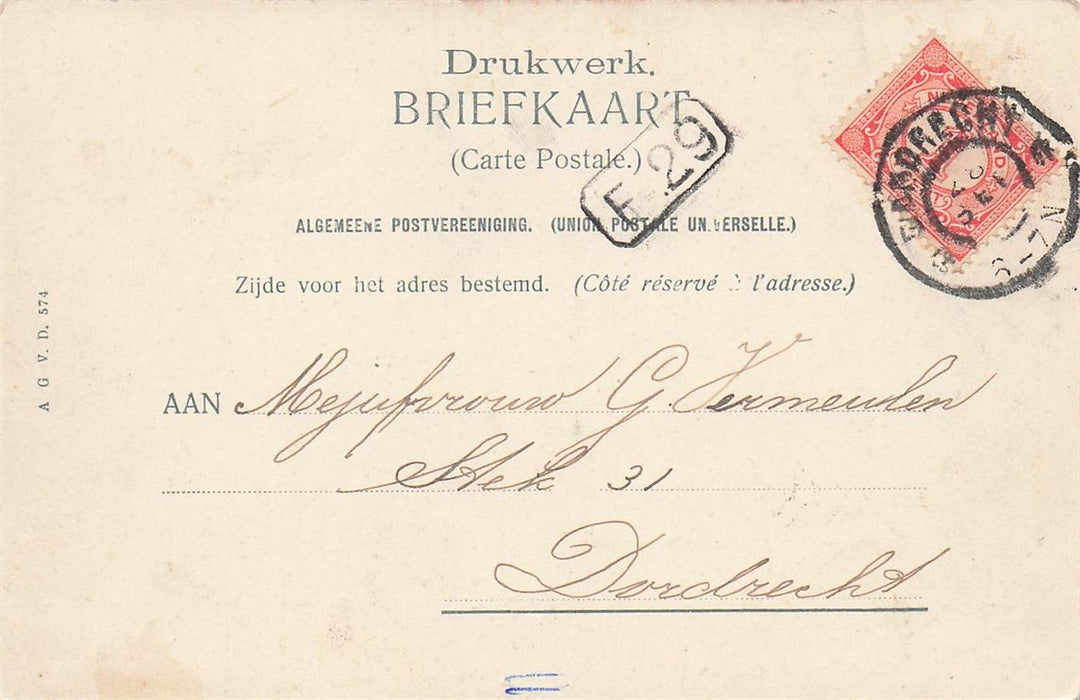 Drukwerk.
BRIEFKAART
(Carte Postale.)
F.29
ALGEMEENE POSTVEREENIGING. (UNION POSTALE UNIVERSELLE.)
Zijde voor het adres bestemd. (Côté réservé à l'adresse.)
DORDRECHT
6-7N
A G V. D. 574
AAN Mejufvrouw G. Vermeulen
Stek 31
Dordrecht